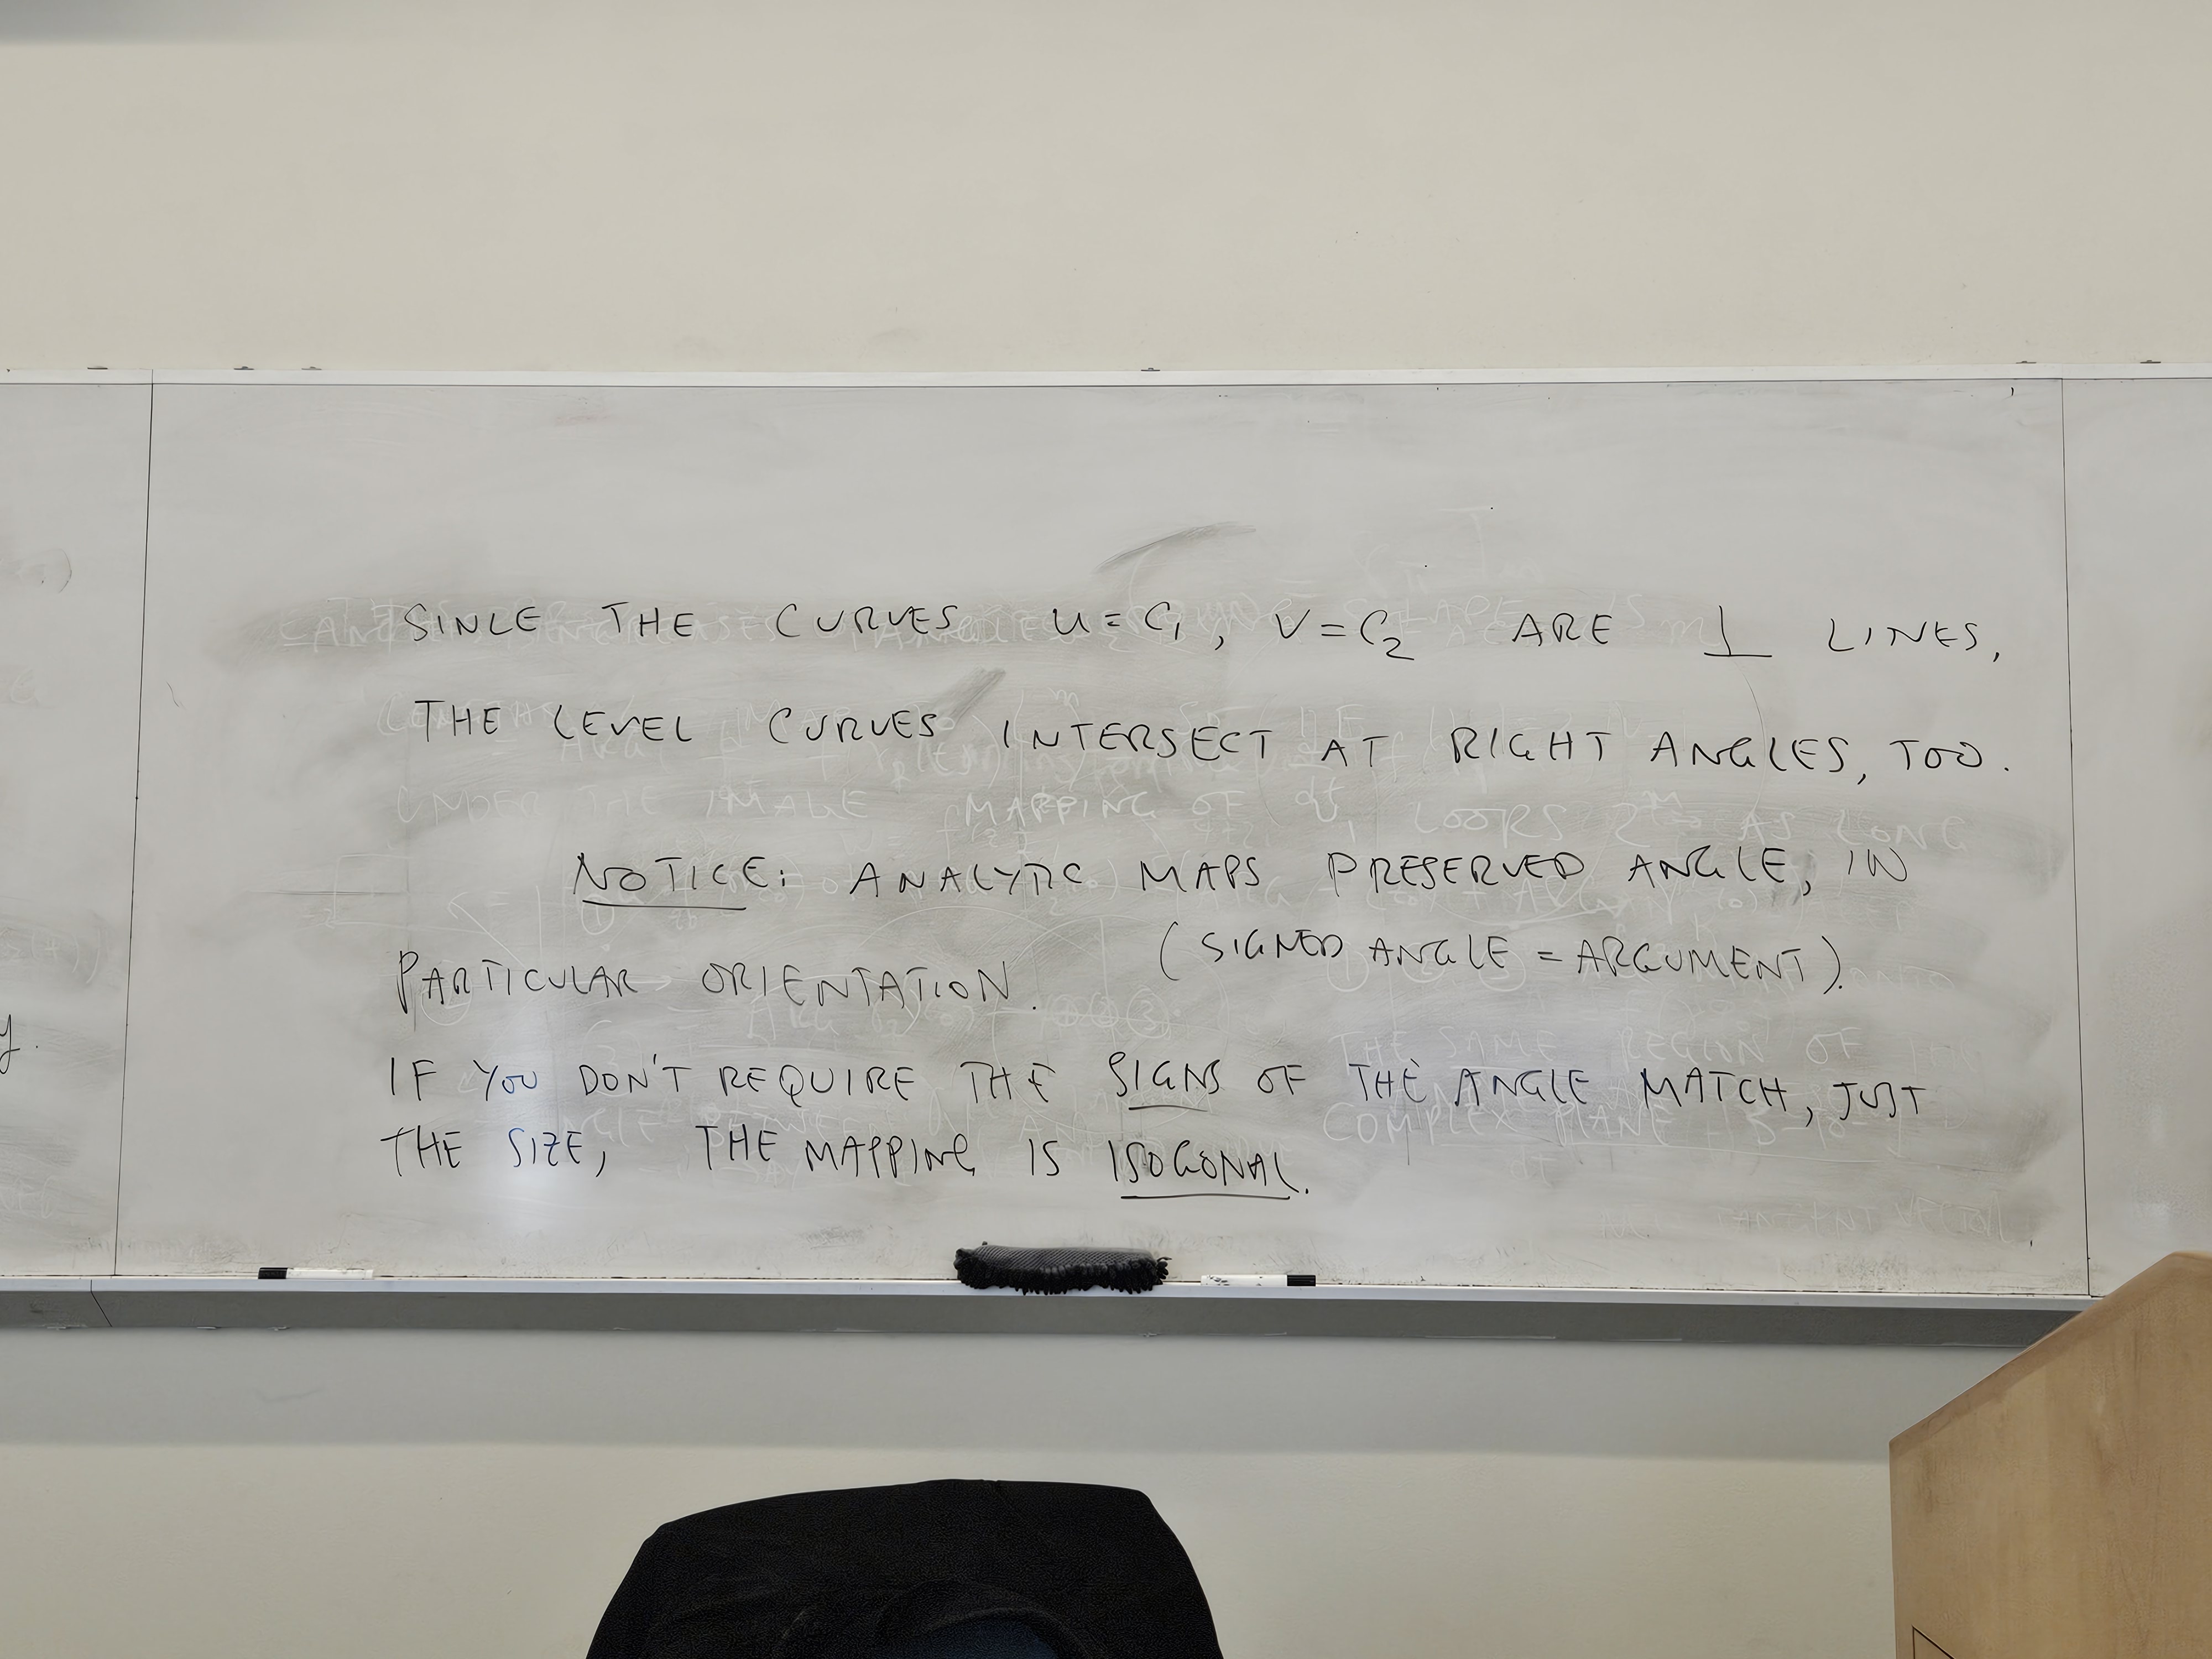 SINCE THE CURVES u = C₁, V = C₂ ARE ⊥ LINES,
THE LEVEL CURVES INTERSECT AT RIGHT ANGLES, TOO.
NOTICE: ANALYTIC MAPS PRESERVED ANGLE, IN
PARTICULAR ORIENTATION. (SIGNED ANGLE = ARGUMENT).
IF YOU DON'T REQUIRE THE SIGNS OF THE ANGLE MATCH, JUST
THE SIZE, THE MAPPING IS ISOGONAL.